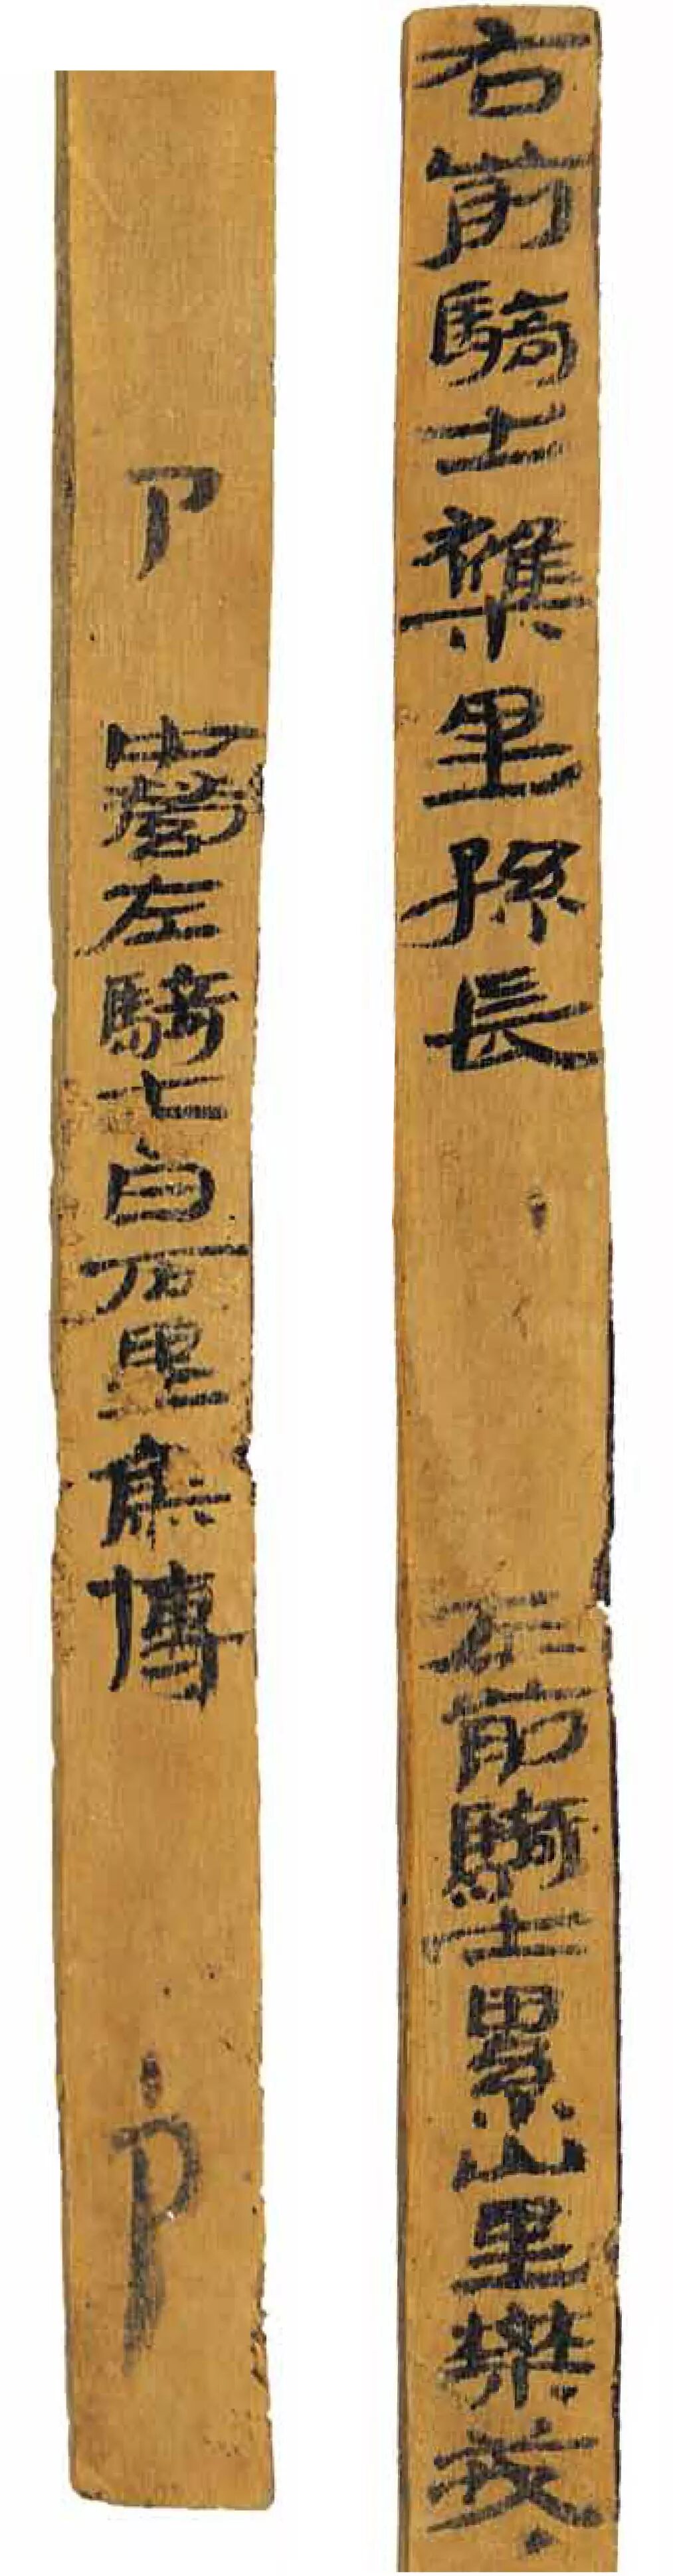 右前騎士襍里孫長 左前騎士累山里樊
卩 中營左騎士白石里康博 卩